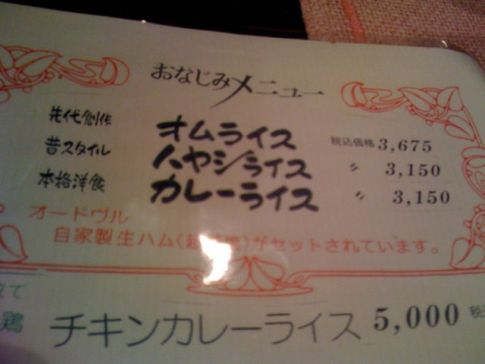 おなじみメニュー
先代創作 オムライス 税込価格 3,675
昔スタイル ハヤシライス 〃 3,150
本格洋食 カレーライス 〃 3,150
オードヴル
自家製生ハム(がセットされています。
立て
鶏 チキンカレーライス 5,000 税